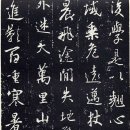 後學是以翹心
域乘危遠邁杖
晨飛途間失地
天萬里山川
進影百重寒暑